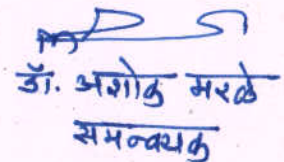 डॉ. अशोक मरळे
समन्वयक